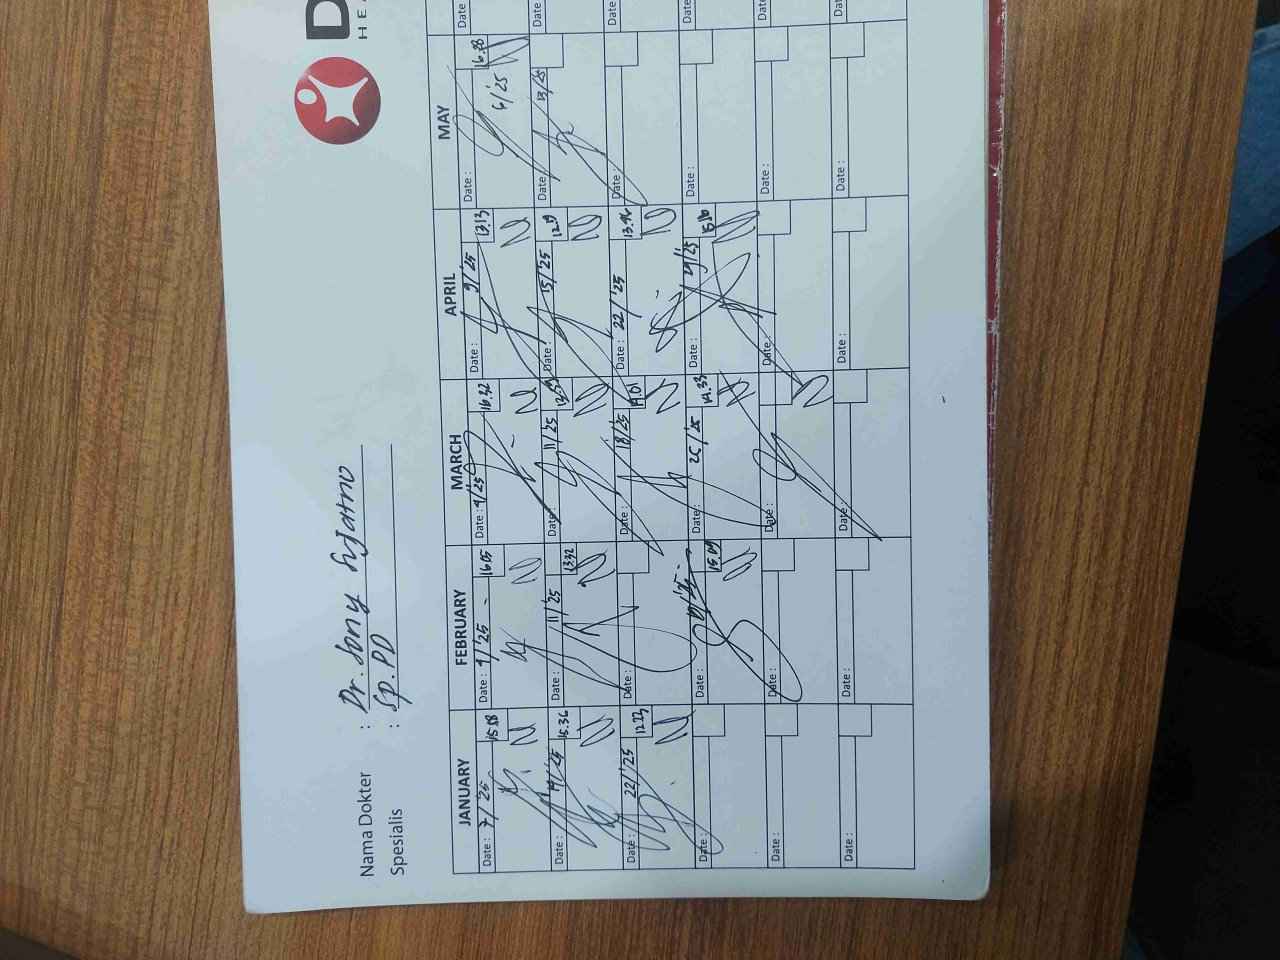 D
HEA
Nama Dokter : Dr. Sony
Spesialis : Sp.PD
JANUARY FEBRUARY MARCH APRIL MAY
Date : 7/25 15.58 Date : 4/25 16.05 Date : 4/25 16.32 Date : 9/25 13.13 Date : 6/25 16.28 Date
Date : 14/25 15.36 Date : 11/25 13.32 Date : 11/25 Date : 15/25 Date : 13/25 Date
Date : 22/25 Date : Date : 18/25 14.01 Date : 22/25 Date : Date
Date : Date : 15.09 Date : 25/25 14.33 Date : 29/25 Date : Date
Date : Date : Date : Date : Date : Date
Date : Date : Date : Date : Date : Date